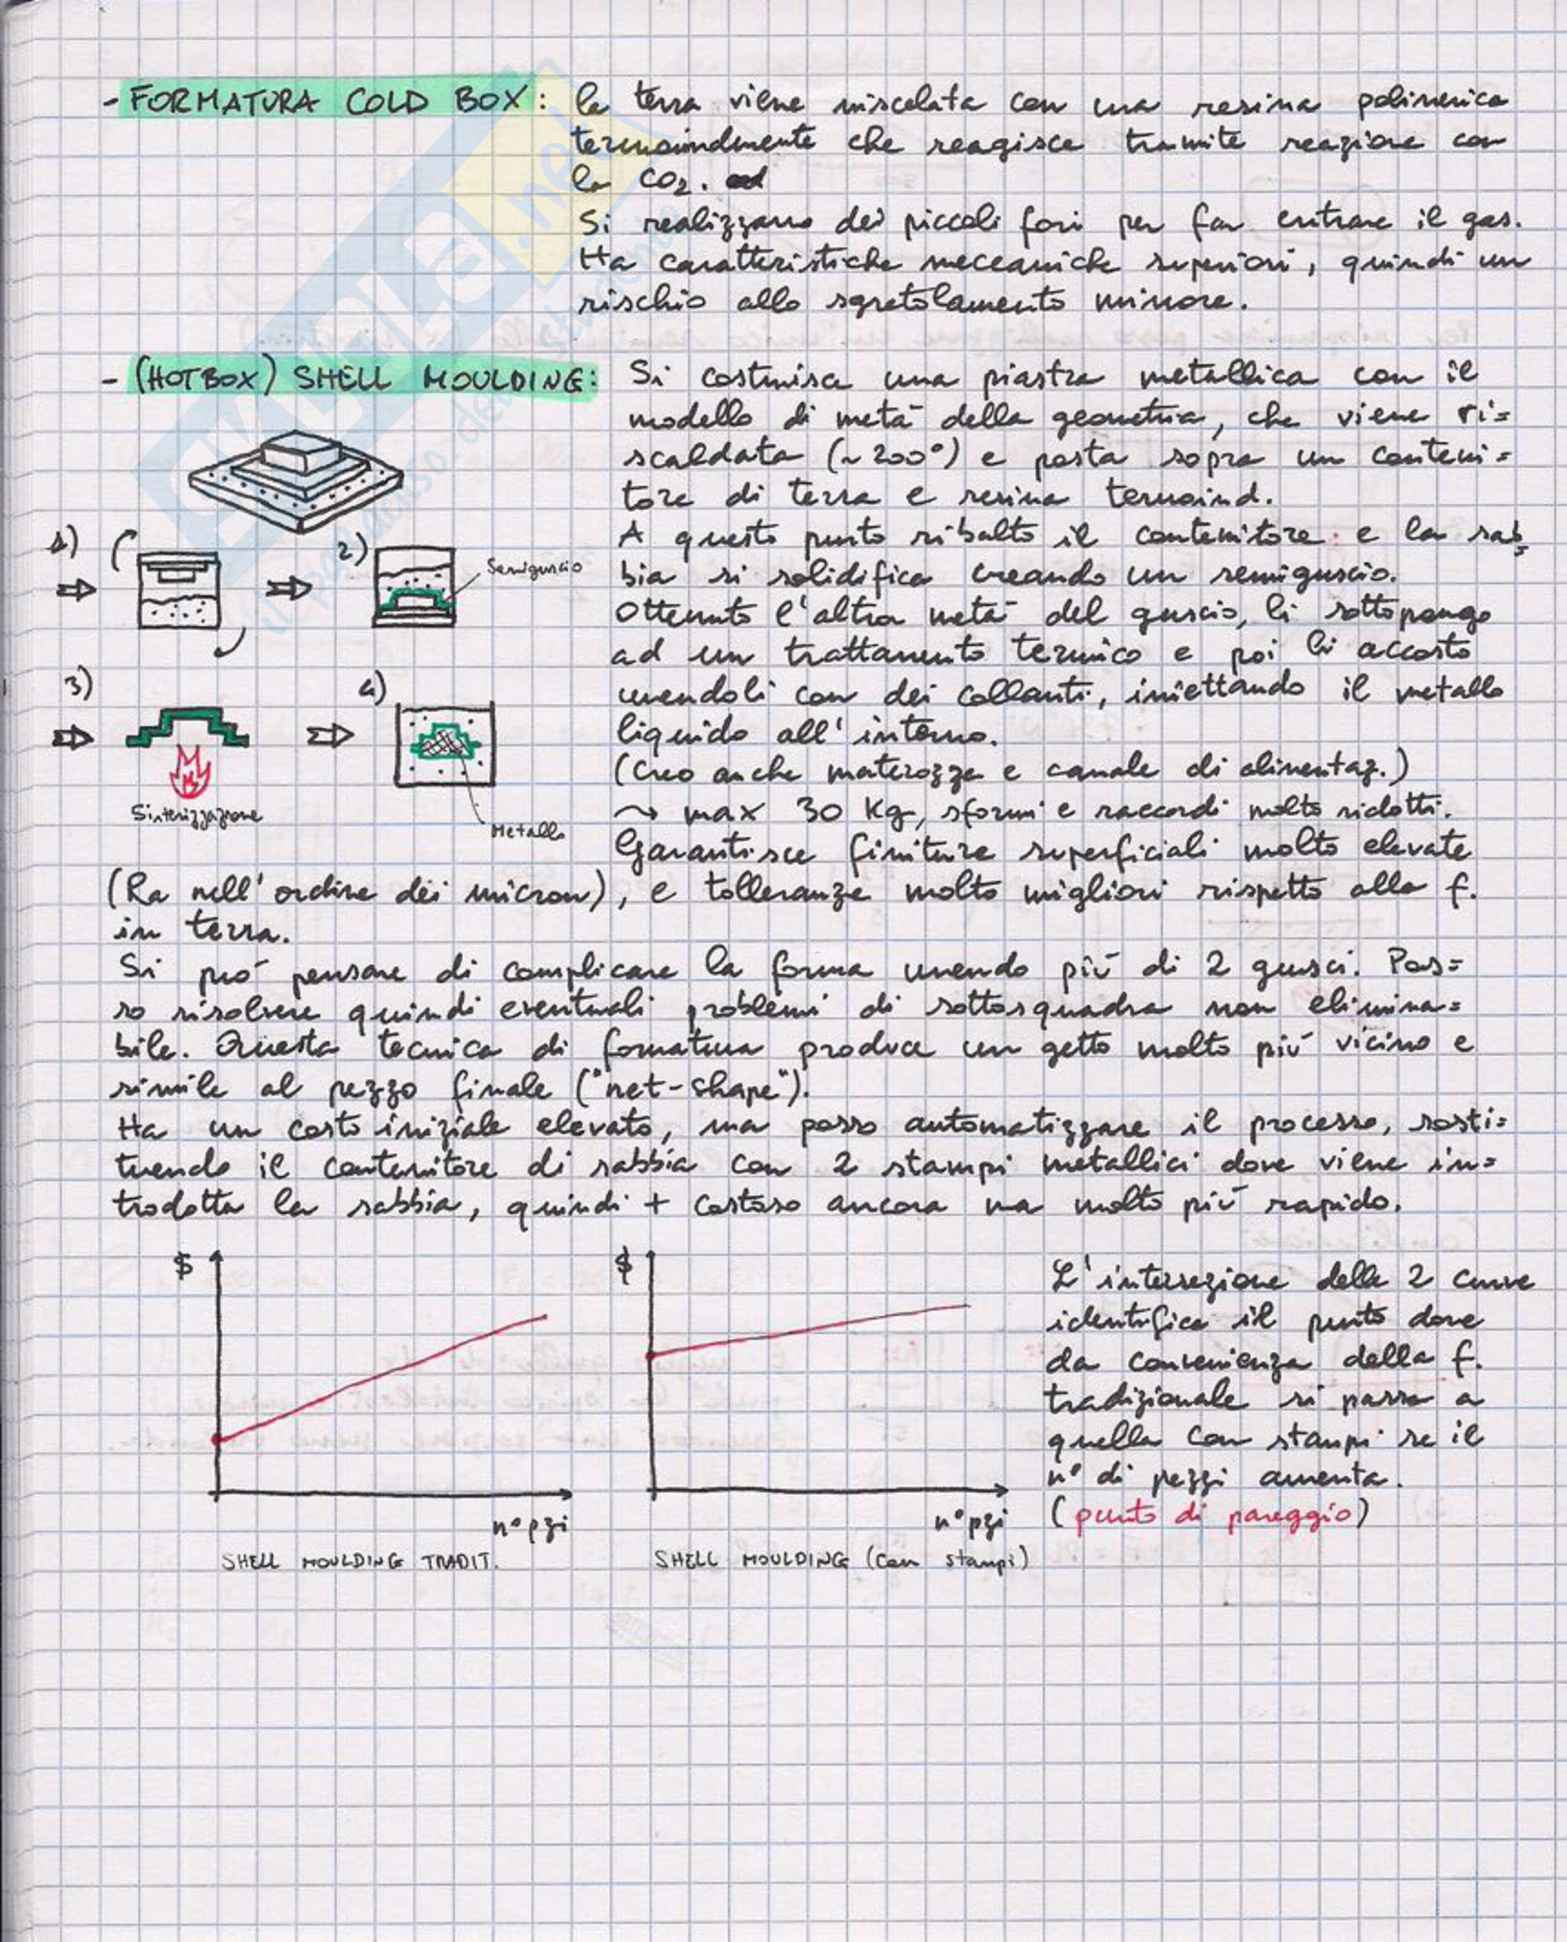 - FORMATURA COLD BOX: la terra viene miscelata con una resina polimerica
termoindurente che reagisce tramite reazione con
la CO2.
Si realizzano dei piccoli fori per far entrare il gas.
Ha caratteristiche meccaniche superiori, quindi un
rischio allo sgretolamento minore.
- (HOTBOX) SHELL MOULDING: Si costruisce una piastra metallica con il
modello di metà della geometria, che viene ri=
scaldata (~200°) e posta sopra un conteni=
tore di terra e resina termoind.
A questo punto ribalto il contenitore e la sab=
bia si solidifica creando un semiguscio.
Ottenuto l'altra metà del guscio, li sottopongo
ad un trattamento termico e poi li accosto
unendoli con dei collanti, iniettando il metallo
liquido all'interno.
(Creo anche materozze e canale di alimentaz.)
→ max 30 Kg, sformi e raccordi molto ridotti.
Garantisce finiture superficiali molto elevate
(Ra nell'ordine dei micron), e tolleranze molto migliori rispetto alla f.
in terra.
1)
2)
Semiguscio
3)
4)
Sinterizzazione
Metallo
Si può pensare di complicare la forma unendo più di 2 gusci. Pos=
so risolvere quindi eventuali problemi di sottosquadra non elimina=
bile. Questa tecnica di formatura produce un getto molto più vicino e
simile al pezzo finale ("net-shape").
Ha un costo iniziale elevato, ma posso automatizzare il processo, sosti=
tuendo il contenitore di sabbia con 2 stampi metallici dove viene in=
trodotta la sabbia, quindi + costoso ancora ma molto più rapido.
$
n° pzi
SHELL MOULDING TRADIT.
$
n° pzi
SHELL MOULDING (con stampi)
L'intersezione delle 2 curve
identifica il punto dove
da convenienza della f.
tradizionale si passa a
quella con stampi se il
n° di pezzi aumenta.
(punto di pareggio)